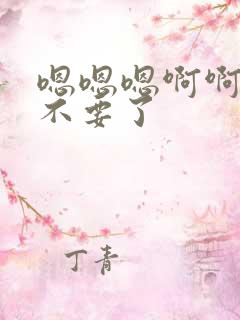 嗯嗯嗯啊啊
不要了
丁青